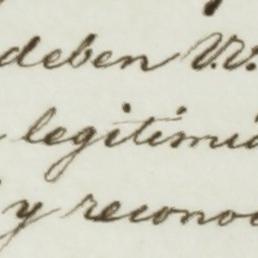 deben V.V.
legitimid
y reconoc